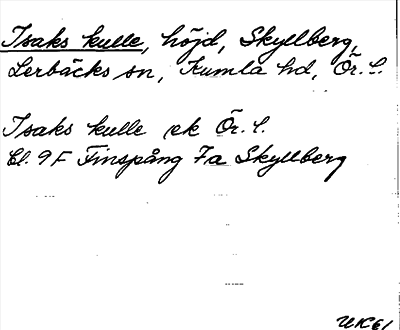 Isaks kulle, höjd, Skyllberg,
Lerbäcks sn, Kumla hd, Ör. l.
Isaks kulle ek Ör. l.
Bl. 9F Finspång 7a Skyllberg